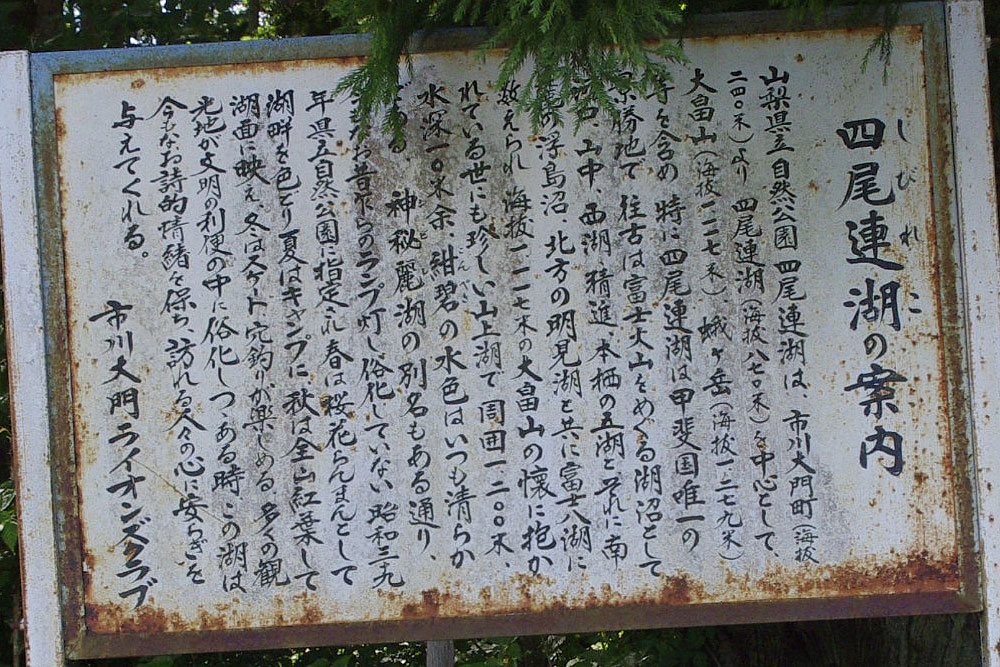 四尾連湖の案内
しびれこ
山梨県立自然公園四尾連湖は、市川大門町(海抜
二四〇米)より 四尾連湖(海抜八七〇米)を中心として、
大畠山(海抜一一一七米)、蛾ヶ岳(海抜一、二七九米)
等を含め 特に四尾連湖は甲斐国唯一の
景勝地で 往古は富士火山をめぐる湖沼として
河口、山中、西湖精進本栖の五湖とそれに南
の浮島沼 北方の明見湖と共に富士八湖に
数えられ 海抜一、一一七米の大畠山の懐に抱か
れている世にも珍しい山上湖で 周囲一二〇〇米、
水深一〇米余、紺碧の水色はいつも清らか
である 神秘麗湖の別名もある通り、
なお昔からのランプ灯し俗化していない 昭和三九
年県立自然公園に指定され春は桜花らんまんとして
湖畔を色どり夏はキャンプに 秋は全山紅葉して
湖面に映え、冬はスケート穴釣りが楽しめる 多くの観
光地が文明の利便の中に俗化しつゝある時 この湖は
今もなお詩的情緒を保ち、訪れる人々の心に安らぎを
与えてくれる。
市川大門ライオンズクラブ